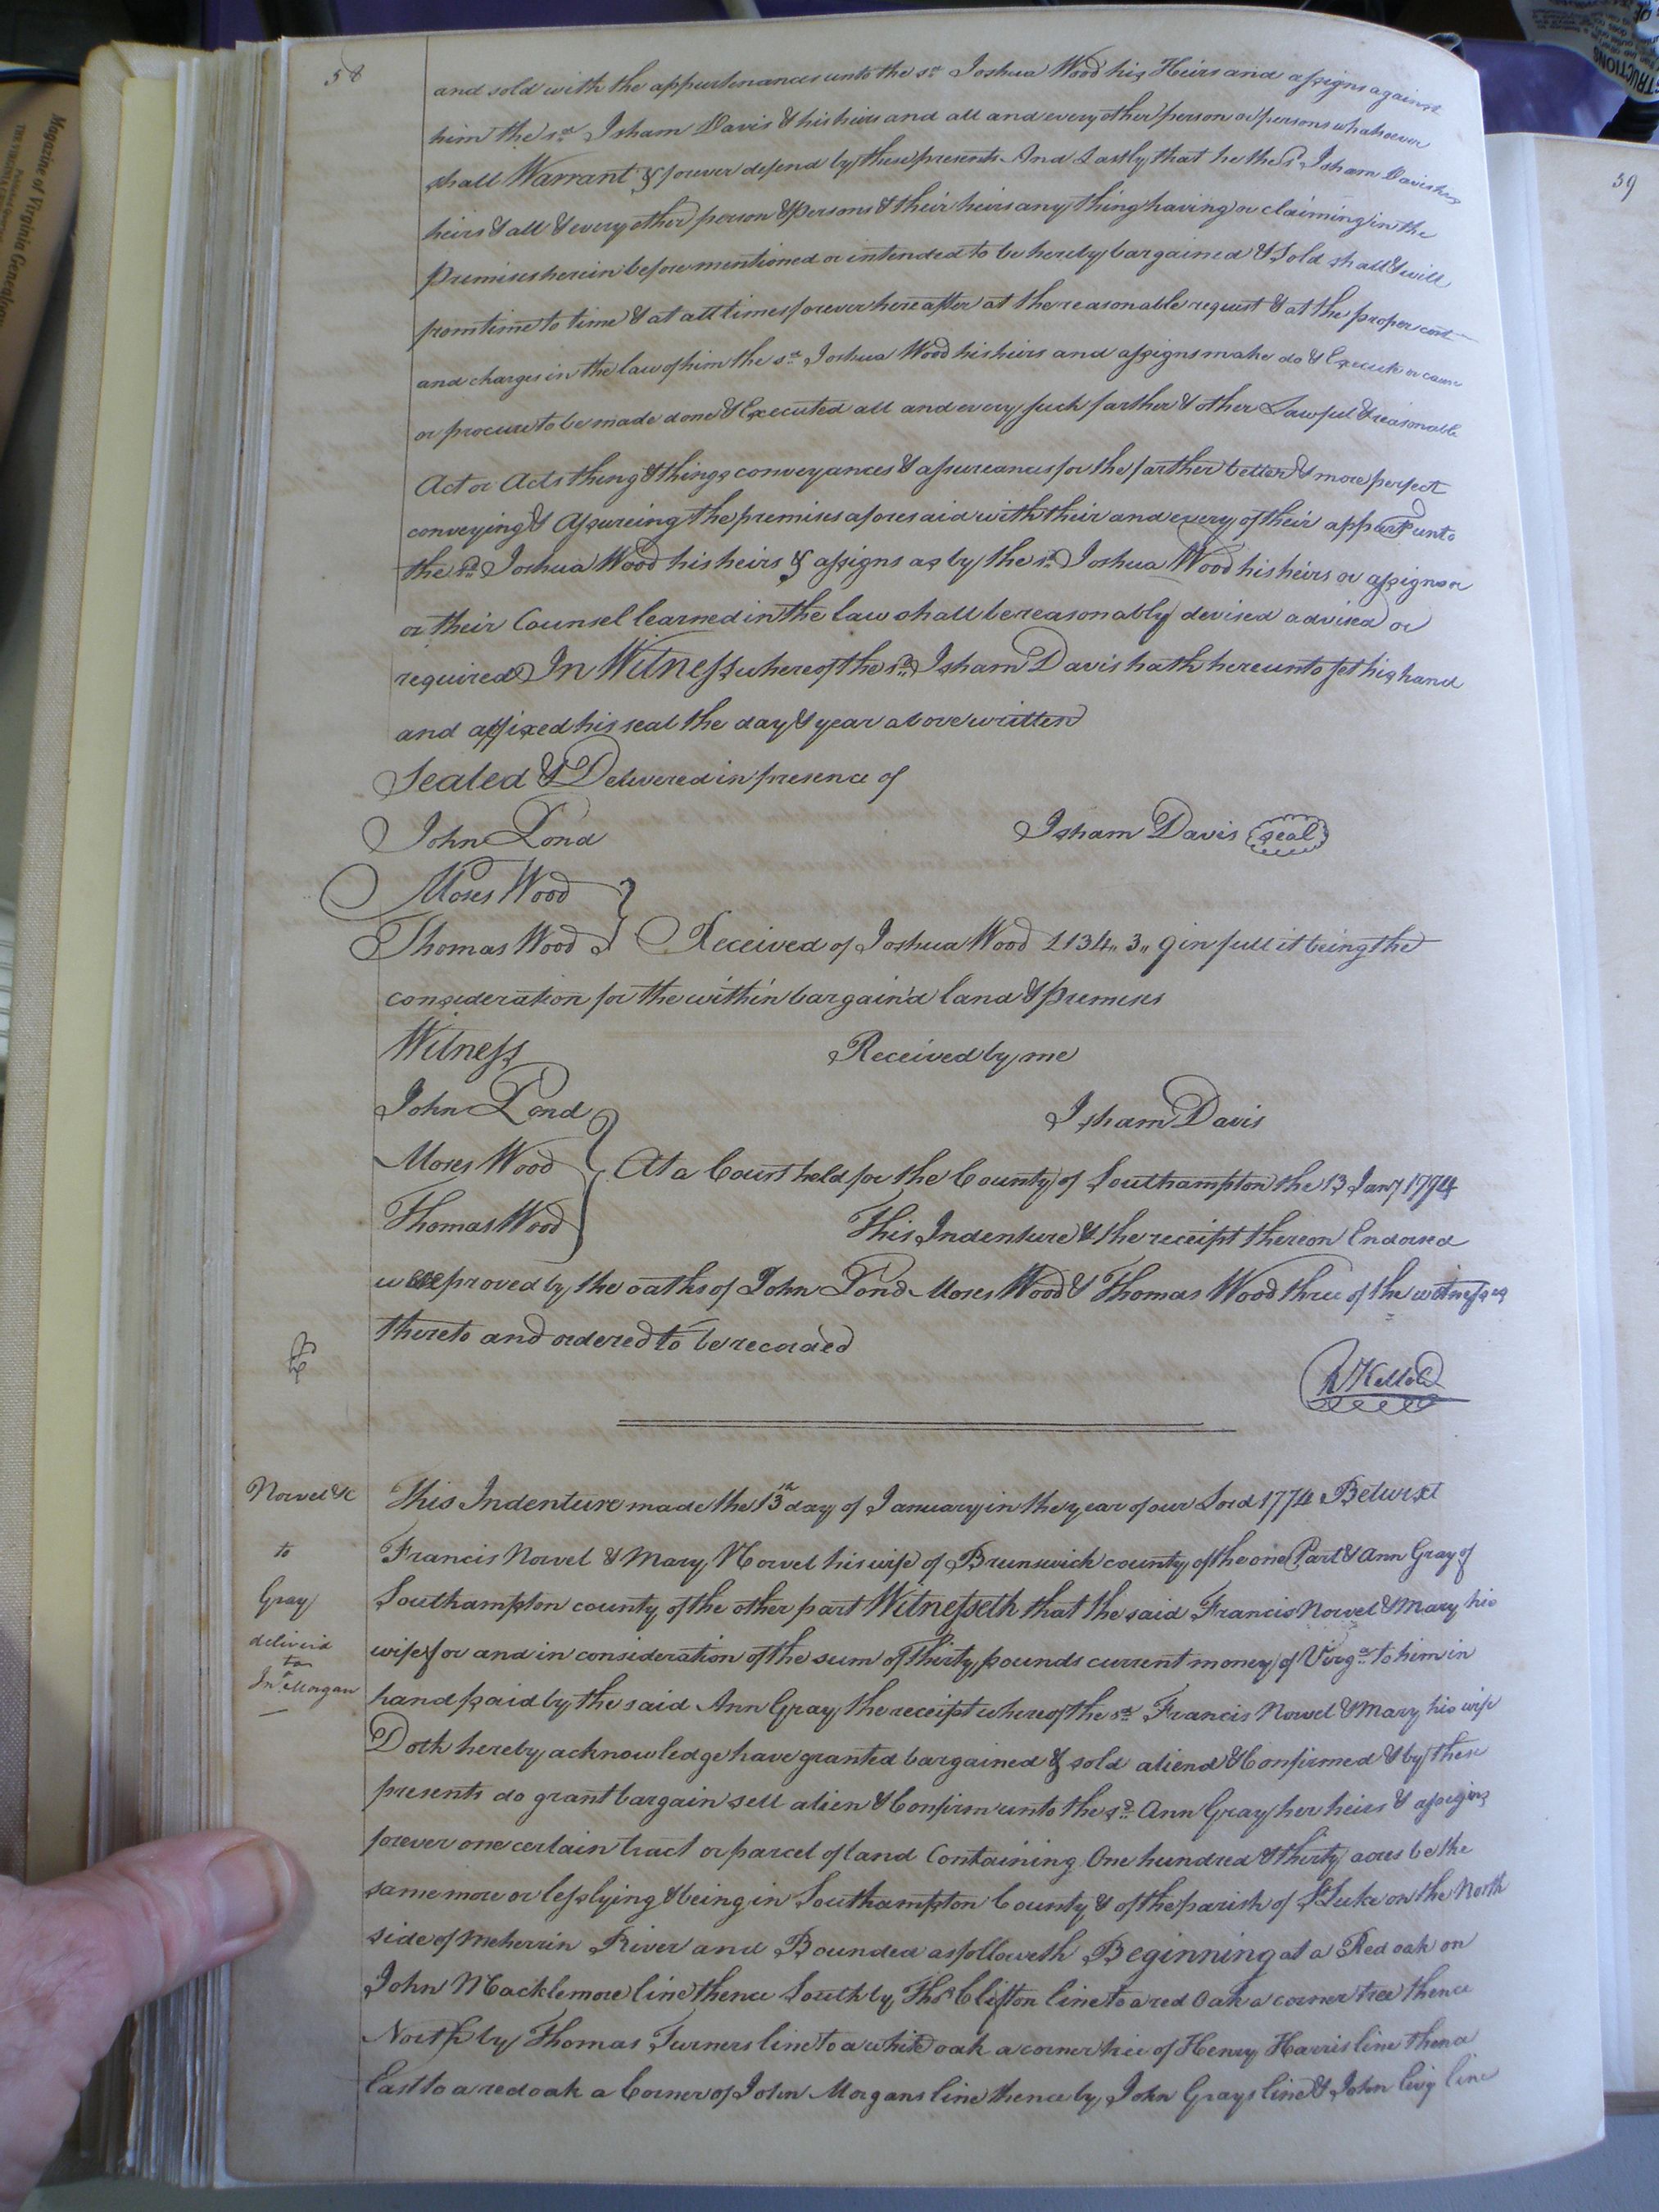 58
and sold with the appurtenances unto the sd. Joshua Wood his Heirs and assigns against
him the sd. Isham Davis & his heirs and all and every other person or persons whatsoever
shall Warrant & forever defend by these presents And Lastly that he the sd. Isham Davis his
heirs & all & every other person & persons & their heirs any thing having or claiming in the
Premises herein before mentioned or intended to be hereby bargained & Sold shall & will
from time to time & at all times forever hereafter at the reasonable request & at the proper cost
and charges in the law of him the sd. Joshua Wood his heirs and assigns make do & Execute or cause
or procure to be made done & Executed all and every such farther & other Lawful & reasonable
Act or Acts thing & things conveyances & assureances for the farther better & more perfect
conveying & Assureing the premises aforesaid with their and every of their appurt unto
the sd. Joshua Wood his heirs & assigns as by the sd. Joshua Wood his heirs or assigns or
or their Counsel learned in the law shall be reasonably devised advised or
required In Witness whereof the sd. Isham Davis hath hereunto set his hand
and affixed his seal the day & year above written
Sealed & Delivered in presence of
John Pond Isham Davis seal
Moses Wood
Thomas Wood Received of Joshua Wood £134,,3,,9 in full it being the
consideration for the within bargain'd land & premises
Witness Received by me
John Pond Isham Davis
Moses Wood At a Court held for the County of Southampton the 13 Jany 1774
Thomas Wood This Indenture & the receipt thereon Endorsed
were proved by the oaths of John Pond Moses Wood & Thomas Wood three of the witnesses
thereto and ordered to be recorded
R Kello
Norvel &c This Indenture made the 13th day of January in the year of our Lord 1774 Betwixt
to Francis Norvel & Mary Norvel his wife of Brunswick county of the one Part & Ann Gray of
Gray Southampton county of the other part Witnesseth that the said Francis Norvel & Mary his
deliverd wife for and in consideration of the sum of thirty pounds current money of Virga. to him in
to
Jno. Morgan hand paid by the said Ann Gray the receipt whereof the sd. Francis Norvel & Mary his wife
Doth hereby acknowledge have granted bargained & sold aliend & Confirmed & by these
presents do grant bargain sell alien & Confirm unto the sd. Ann Gray her heirs & assigns
forever one certain tract or parcel of land Containing One hundred & thirty acres be the
same more or less lying & being in Southampton County & of the parish of St Luke on the North
side of Meherrin River and Bounded as followeth Beginning at a Red oak on
John Macklemore line thence South by Thos Clifton line to a red Oak a corner tree thence
North by Thomas Turners line to a white oak a corner tree of Henry Harris line thence
East to a red oak a Corner of John Morgans line thence by John Grays line & John line
59
Magazine of Virginia Genealogy